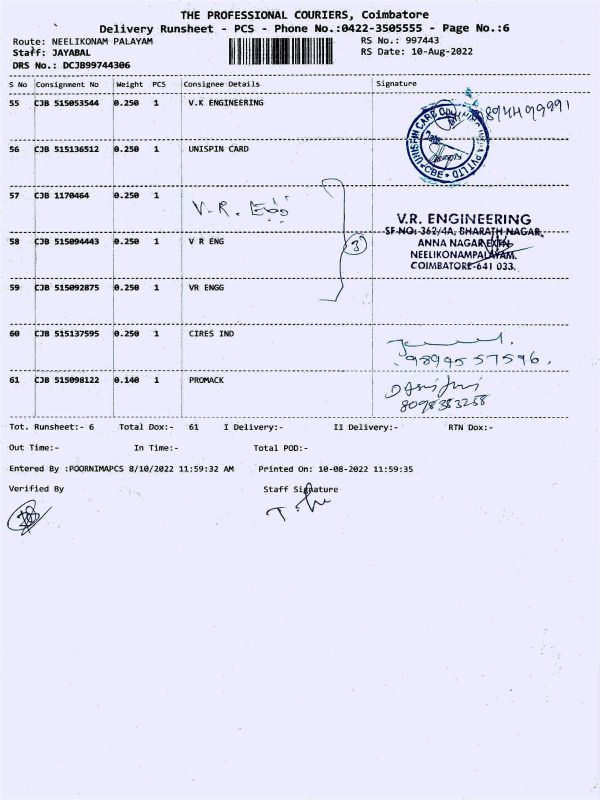 THE PROFESSIONAL COURIERS, Coimbatore
Delivery Runsheet - PCS - Phone No.:0422-3505555 - Page No.:6
Route: NEELIKONAM PALAYAM RS No.: 997443
Staff: JAYABAL RS Date: 10-Aug-2022
DRS No.: DCJB99744306
S No Consignment No Weight PCS Consignee Details Signature
55 CJB 515053544 0.250 1 V.K ENGINEERING 8944099991
56 CJB 515136512 0.250 1 UNISPIN CARD
UNISPIN CARD INDIA PVT LTD
CBE
57 CJB 1170464 0.250 1 V.R. Engg
V.R. ENGINEERING
SF NO: 362/4A, BHARATH NAGAR,
58 CJB 515094443 0.250 1 V R ENG 3 ANNA NAGAR EXTN,
NEELIKONAMPALAYAM,
COIMBATORE-641 033.
59 CJB 515092875 0.250 1 VR ENGG
60 CJB 515137595 0.250 1 CIRES IND
9894557596.
61 CJB 515098122 0.140 1 PROMACK
8098383268
Tot. Runsheet:- 6 Total Dox:- 61 I Delivery:- II Delivery:- RTN Dox:-
Out Time:- In Time:- Total POD:-
Entered By :POORNIMAPCS 8/10/2022 11:59:32 AM Printed On: 10-08-2022 11:59:35
Verified By Staff Signature